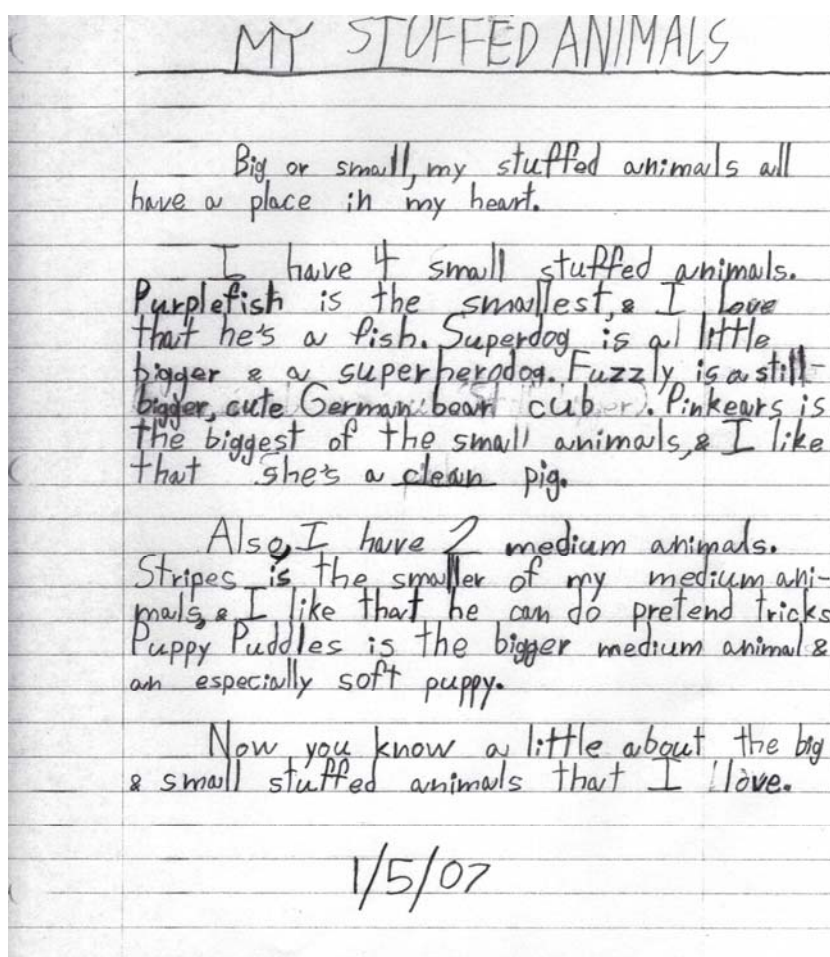 MY STUFFED ANIMALS
Big or small, my stuffed animals all
have a place in my heart.
I have 4 small stuffed animals.
Purplefish is the smallest, & I love
that he's a fish. Superdog is a little
bigger & a superherodog. Fuzzly is a still-
bigger, cute German bear cub. Pinkears is
the biggest of the small animals, & I like
that she's a clean pig.
Also, I have 2 medium animals.
Stripes is the smaller of my medium ani-
mals, & I like that he can do pretend tricks
Puppy Puddles is the bigger medium animal &
an especially soft puppy.
Now you know a little about the big
& small stuffed animals that I love.
1/5/07